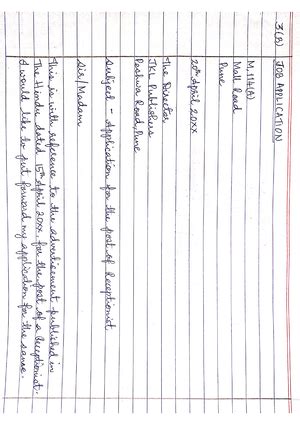 3(B) JOB APPLICATION
M.114(A)
Mall Road
Pune
20th April 20XX
The Director
JKL Publishers
Peshwa Road, Pune
Subject - Application for the post of Receptionist
Sir/Madam
This is with reference to the advertisement published in
The Hindu dated 15th April 20XX, for the post of a Receptionist.
I would like to put forward my application for the same.